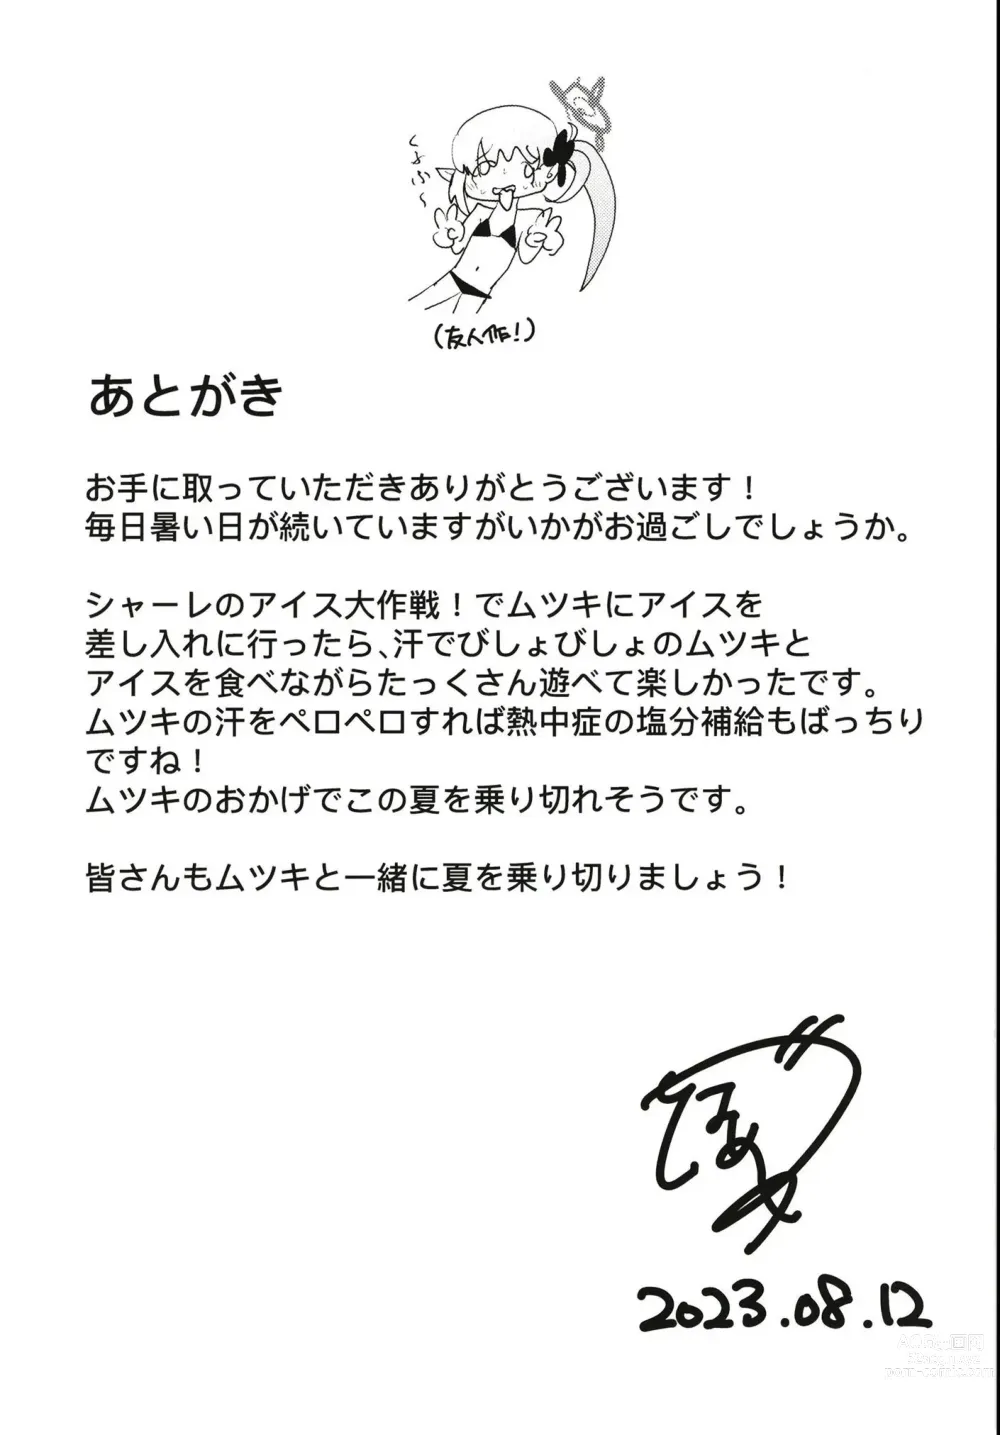 くぱぁ〜
(友人作!)
あとがき
お手に取っていただきありがとうございます！
毎日暑い日が続いていますがいかがお過ごしでしょうか。
シャーレのアイス大作戦！でムツキにアイスを
差し入れに行ったら、汗でびしょびしょのムツキと
アイスを食べながらたっくさん遊べて楽しかったです。
ムツキの汗をペロペロすれば熱中症の塩分補給もばっちり
ですね！
ムツキのおかげでこの夏を乗り切れそうです。
皆さんもムツキと一緒に夏を乗り切りましょう！
2023.08.12